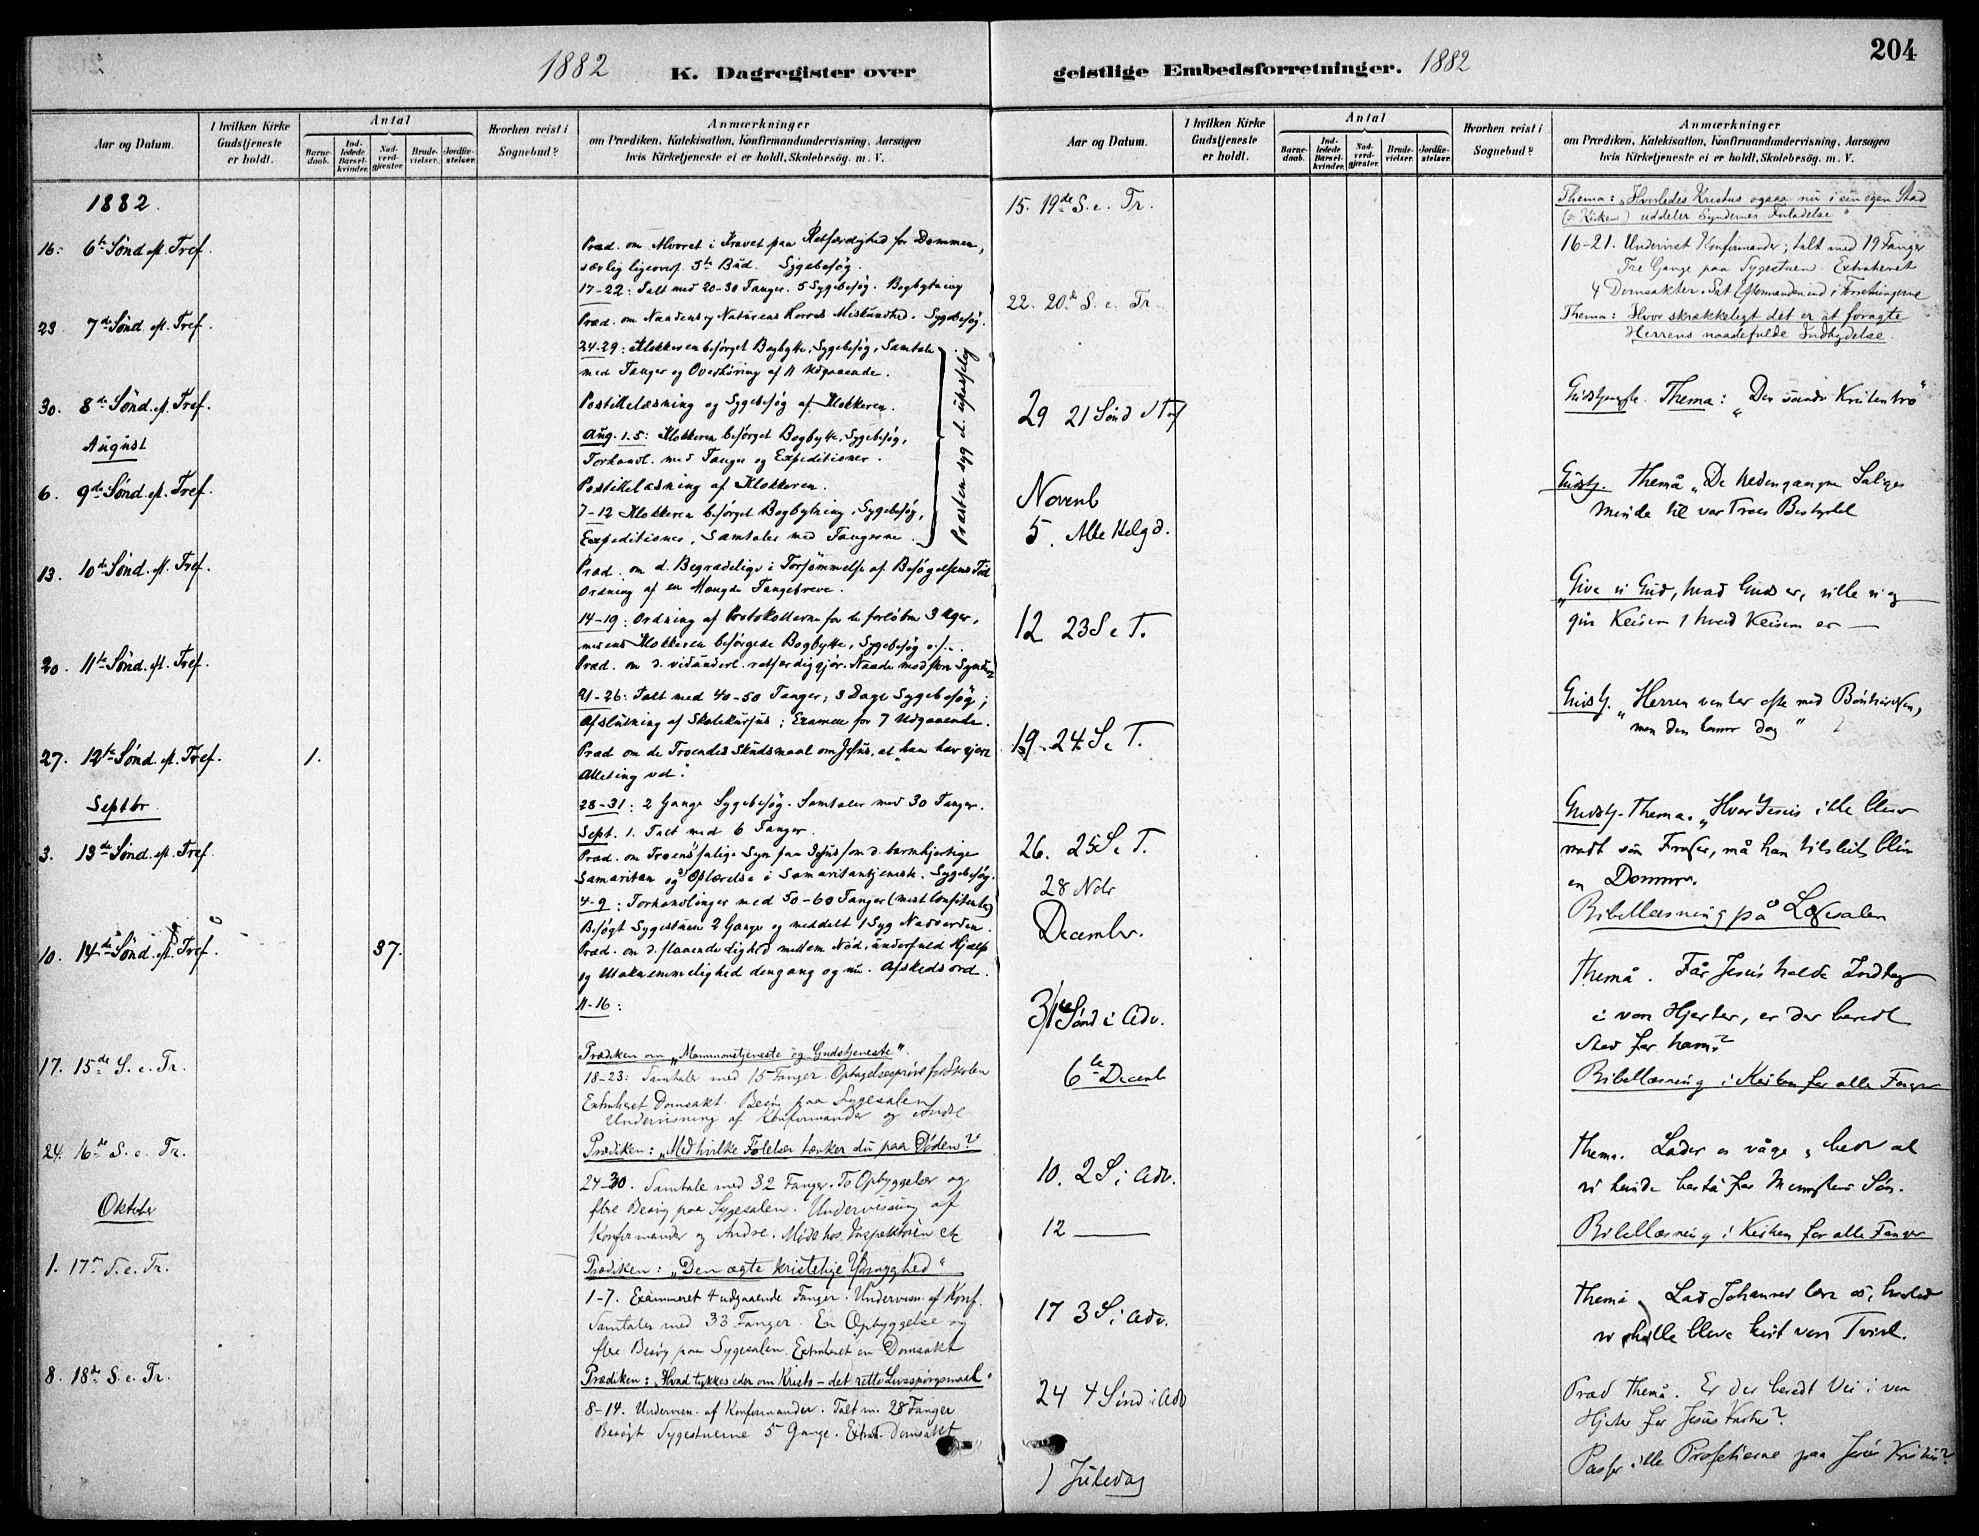 204
1882 K. Dagregister over
Aar og Datum.
I hvilken Kirke Gudstjeneste er holdt.
Antal
Barnedaab.
Indledede Barselkvinder.
Nadverdgjester.
Brudevielser.
Jordfæstelser.
Hvorhen reist i Sognebud?
Anmærkninger
om Prædiken, Katekisation, Konfirmandundervisning, Aarsagen
hvis Kirketjeneste ei er holdt, Skolebesög. m. V.
1882.
16. 6te Sønd. ef. Tref.
Præd. om Alvoret i Kravet paa Retfærdighed for Dommen,
særlig ligeoverf. 5te Bud. Sygebesøg.
17-22: Talt med 20-30 Fanger. 5 Sygebesøg. Bogbytning
23 7de Sønd. ef. Tref.
Præd. om Naadens og Naturens Herres Miskundhed. Sygebesøg.
24-29: Klokkeren besørget Bogbytte, Sygebesøg, Samtale
med Fanger og Overhøring af 11 Udgaaende.
30. 8de Sønd. ef. Tref.
Postillelæsning og Sygebesøg af Klokkeren.
August
Aug. 1.5: Klokkeren besørget Bogbytte, Sygebesøg,
Forhandl. med Fanger og Expeditioner.
6. 9de Sønd. ef. Tref.
Postillelæsning af Klokkeren.
7-12 Klokkeren besørget Bogbytning, Sygebesøg,
Expeditioner, Samtaler med Fangerne.
Præsten syg el. upasselig
13. 10de Sønd. ef. Tref.
Præd. om d. Begrædelige i Forsømmelse af Besøgelsens Tid
Ordning af en Mængde Fangebreve.
14-19: Ordning af Protokollerne for de forløbne 3 Uger,
mens Klokkeren besørgede Bogbytte, Sygebesøg o.s.v.
20. 11te Sønd. ef. Tref.
Præd. om d. vidunderl. retfærdiggjør. Naade mod store Syndere
21-26: Talt med 40-50 Fanger; 3 Dage Sygebesøg;
Afslutning af Skolekursus; Examen for 7 Udgaaende.
27. 12te Sønd. ef. Tref. 1.
Præd om de Troendes Skudsmaal om Jesus, at "han har gjort
Alleting vel."
Septbr
28-31: 2 Gange Sygebesøg. Samtaler med 30 Fanger.
Sept. 1. Talt med 6 Fanger.
3. 13de Sønd. ef. Tref.
Præd. om Troens salige Syn paa Jesus som d. barmhjertige
Samaritan og Oplærelse i Samaritantjeneste. Sygebesøg.
4-9: Forhandlinger med 50-60 Fanger (mest Confitenter)
Besøgt Sygestuen 2 Gange og meddelt 1 Syg Nadverden.
10. 14de Sønd. ef. Tref. 37.
Præd. om d. slaaende lighed mellem Nød, underfuld Hjælp
og Utaknemmelighed dengang og nu. Afskedsord.
11-16:
17. 15de S. e. Tr.
Prædiken om "Mammonstjeneste og Gudstjeneste".
18-23: Samtaler med 15 Fanger. Optagelsesprøve for Skolen
Extraheret Domsakt. Besøg paa Sygesalen
Undervisning af Konfirmander og Andre
24. 16de S. e. Tr.
Prædiken: "Med hvilke Følelser tænker du paa Døden?"
24-30. Samtale med 32 Fanger. To Opbyggelser og
flere Besøg paa Sygesalen. Undervisning af
Oktober
Konfirmander og Andre. Møde hos Inspektøren etc
1. 17de S. e. Tr.
Prædiken: "Den ægte kristelige Ydmyghed"
1-7. Examineret 4 udgaaende Fanger. Undervisn. af Konf.
Samtaler med 33 Fanger. En Opbyggelse og
flere Besøg paa Sygesalen. Extraheret en Domsakt
8. 18de S. e. Tr.
Prædiken: "Hvad tykkes eder om Kristo - det rette Livsspørgsmaal"
8-14. Undervisn. af Konfirmander. Talt m. 28 Fanger
Besøgt Sygestuerne 5 Gange. Extrah. Domsaktet
geistlige Embedsforretninger. 1882
Aar og Datum.
I hvilken Kirke Gudstjeneste er holdt.
Antal
Barnedaab.
Indledede Barselkvinder.
Nadverdgjester.
Brudevielser.
Jordfæstelser.
Hvorhen reist i Sognebud?
Anmærkninger
om Prædiken, Katekisation, Konfirmandundervisning, Aarsagen
hvis Kirketjeneste ei er holdt, Skolebesög. m. V.
15. 19de S. e. Tr.
Thema: "Hvorledes Kristus ogsaa nu i sin egen Stad
(o: Kirken) uddeler Syndernes Forladelse"
16-21. Undervist Konfirmander; talt med 19 Fanger
Tre Gange paa Sygestuen. Extraheret
4 Domsakter. Sat Eftermanden ind i Forretningerne
22. 20de S. e. Tr.
Thema: Hvor skrækkeligt det er at foragte
Herrens naadefulde Indbydelse.
29 21 Sønd e Tref
Gudstjeneste. Thema: "Den sande Kristentro"
Novemb
5. Alle Helgd.
Gudstj. Thema "De hedengangne Saliges
Minde til vor Troes Bestyrkel
12 23 S e T.
"Give vi Gud, hvad Guds er, ville vi og
give Keiseren hvad Keiserens er —
19. 24 S. e T.
Gudstj. "Herren venter ofte med Bønhørelsen,
men den kommer dog"
26. 25 S. e T.
Gudstj. Thema. "Hvor Jesus ikke bliver
modt som Frelser, må han tilsidst blive
en Dommer.
28 Nov
Bibellæsning på Læsesalen
December.
3/ 1ste Sønd i Adv.
Thema. Får Jesus holde Indtog
i vore Hjerter, er der beredt
Sted for ham?
6te Decemb
Bibellæsning i Kirken for alle Fanger
10. 2 S. i Adv.
Thema. Lader os våge og bede at
vi kunde bestå for Menneskens Søn.
12 —
Bibellæsning i Kirken for alle Fanger
17 3 S. i Adv.
Thema. Lad Johannes lære os, hvorled
vi skulle blive kvit vor Tvivl.
24 4 Sønd i Adv
Præd Thema. Er der beredt Vei i vore
Hjerter for Jesus Kristus?
1 Juledag
Passer ikke Profetierne paa Jesus Kristus?